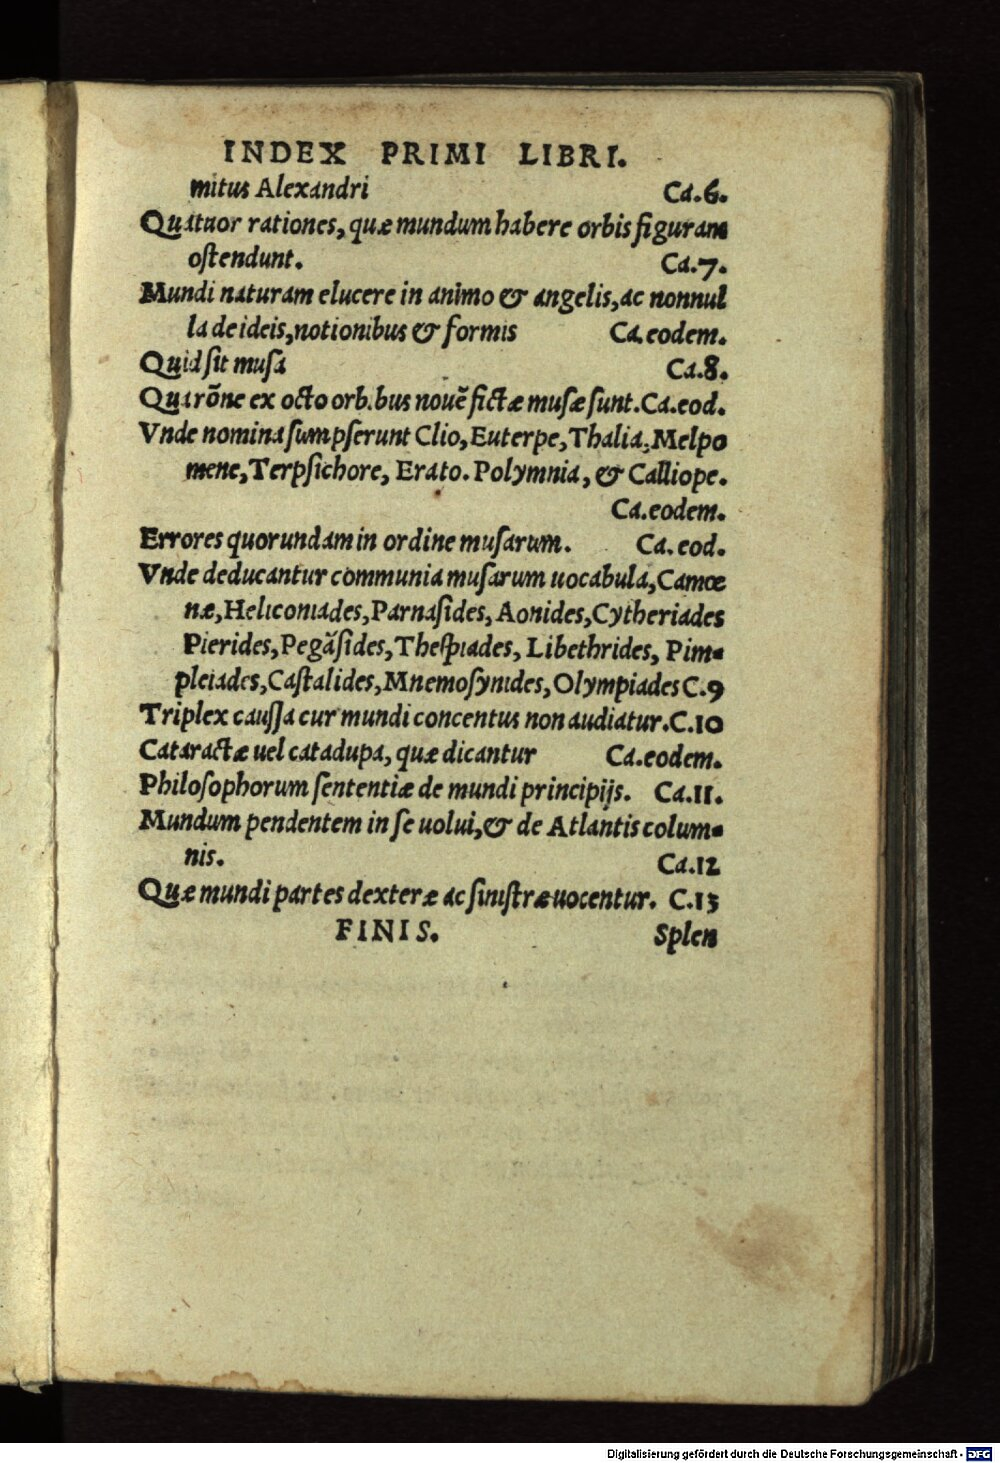 INDEX PRIMI LIBRI.
mitus Alexandri Ca.6.
Quatuor rationes, quæ mundum habere orbis figuram
ostendunt. Ca.7.
Mundi naturam elucere in animo & angelis, ac nonnul
la de ideis, notionibus & formis Ca.eodem.
Quid sit musa Ca.8.
Qua rōne ex octo orb.bus nouē fictæ musæ sunt. Ca.eod.
Vnde nomina sumpserunt Clio, Euterpe, Thalia, Melpo
mene, Terpsichore, Erato. Polymnia, & Calliope.
Ca.eodem.
Errores quorundam in ordine musarum. Ca.eod.
Vnde deducantur communia musarum uocabula, Camœ
næ, Heliconiades, Parnasides, Aonides, Cytheriades
Pierides, Pegāsides, Thespiades, Libethrides, Pim-
pleiades, Castalides, Mnemosynides, Olympiades C.9
Triplex caussa cur mundi concentus non audiatur. C.10
Cataractæ uel catadupa, quæ dicantur Ca.eodem.
Philosophorum sententiæ de mundi principijs. Ca.11.
Mundum pendentem in se uolui, & de Atlantis colum-
nis. Ca.12
Quæ mundi partes dexteræ ac sinistræ uocentur. C.13
FINIS. Splen
Digitalisierung gefördert durch die Deutsche Forschungsgemeinschaft - DFG